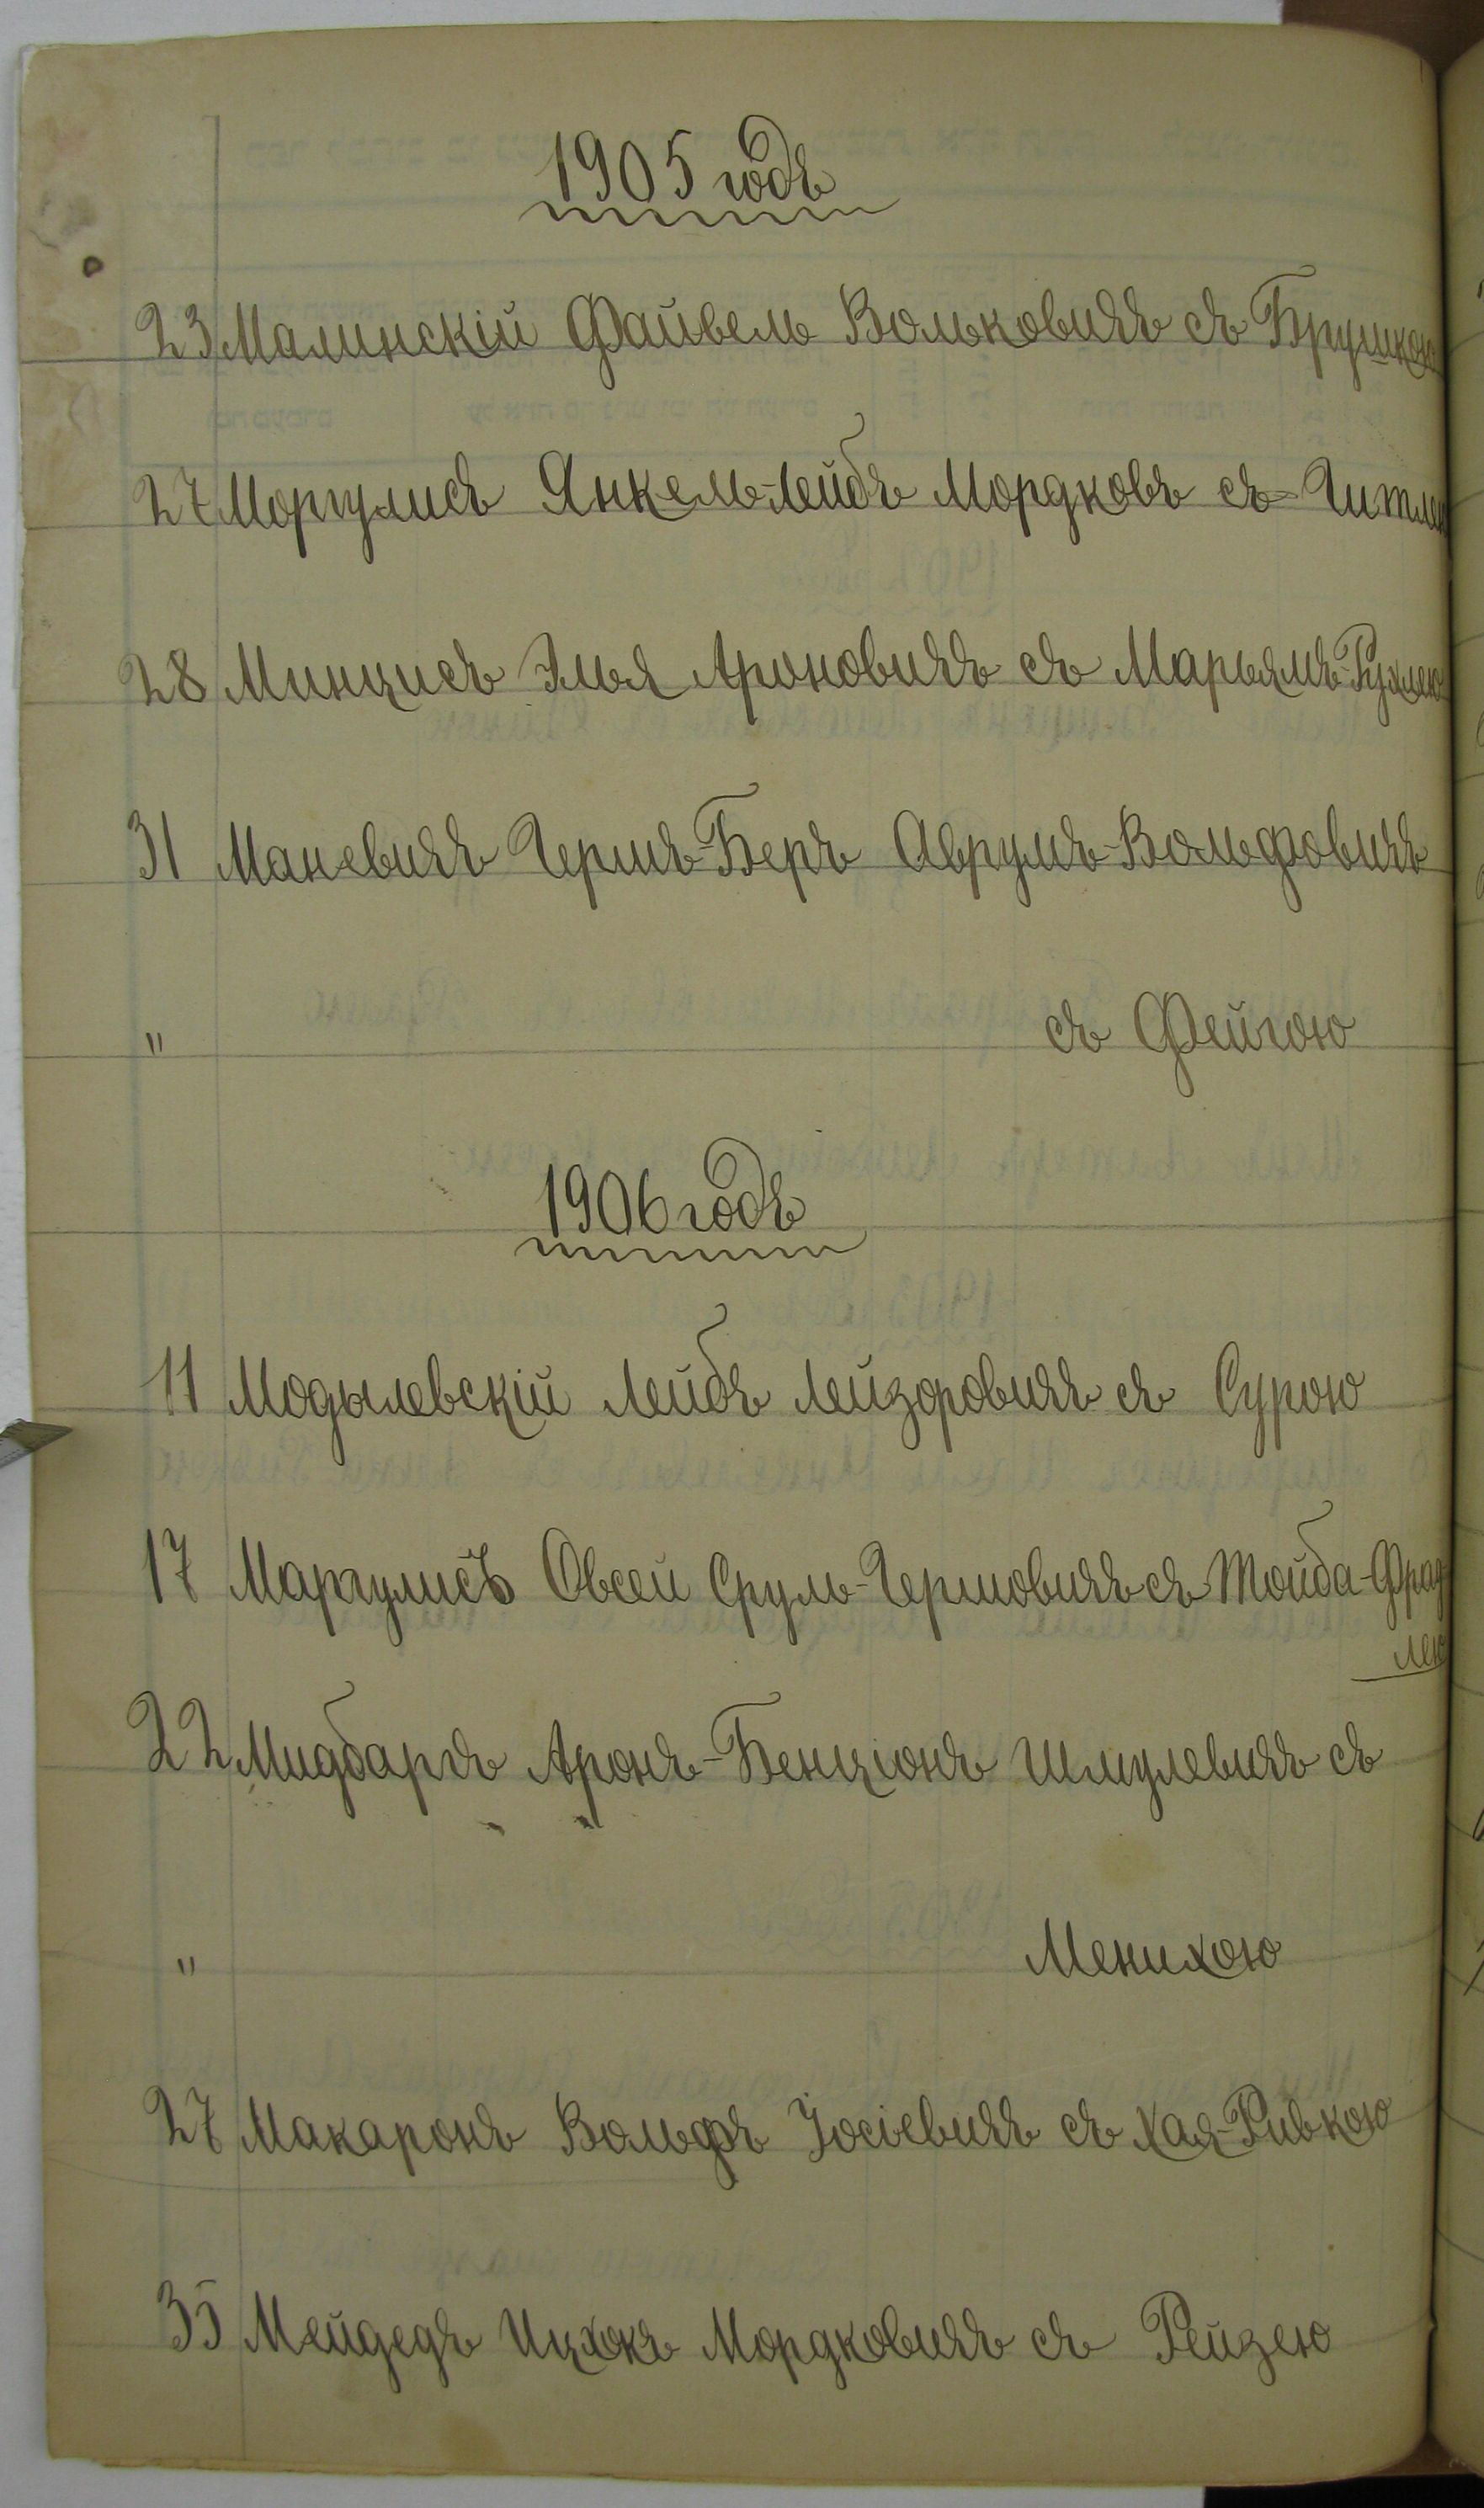 1905 годъ
23 Малинскій Файвель Вольковичъ съ Брушкою
27 Моргулисъ Янкель-Лейбъ Мордковъ съ Гитлею
28 Минцисъ Элья Ароновичъ съ Марьямъ-Рухлею
31 Маневичъ Гершъ-Беръ Аврумъ-Вольфовичъ
" съ Фейгою
1906 годъ
11 Модылевскій Лейбъ Лейзоровичъ съ Сурою
17 Маргулисъ Овсей Сруль-Гершовичъ съ Тойба-Фрад
лею
22 Мидбаръ Аронъ-Бенціонъ Шмулевичъ съ
" Менихою
27 Макаронъ Вольфъ Іосіевичъ съ Хая-Ривкою
35 Мейдедъ Ицхокъ Мордковичъ съ Рейзею